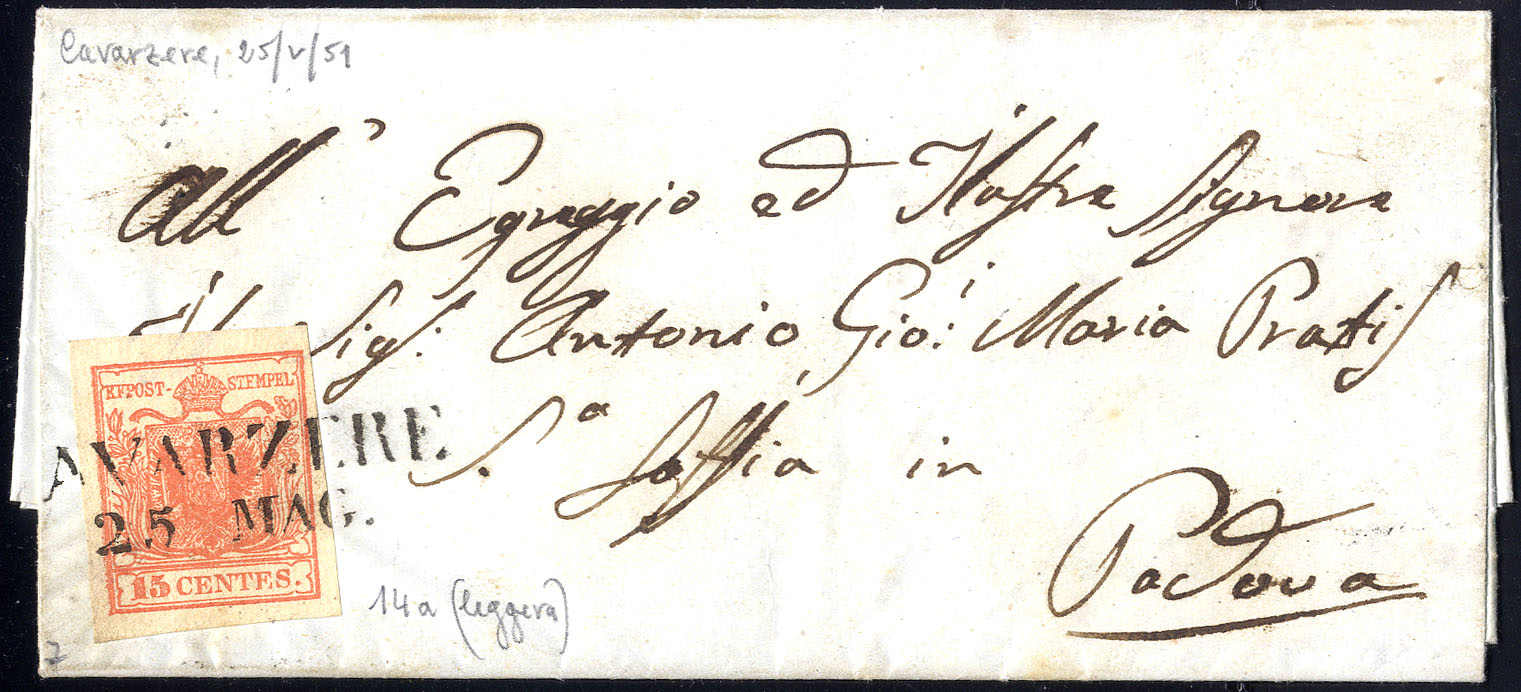 Cavarzere, 25/V/51
All' Egreggio ed Illustra Signora
Il Sig: Antonio Gio: Maria Pratti
S.a Soffia in
Padova
KKPOST-STEMPEL
AVARZERE
25 MAG.
15 CENTES.
14a (leggera)
7